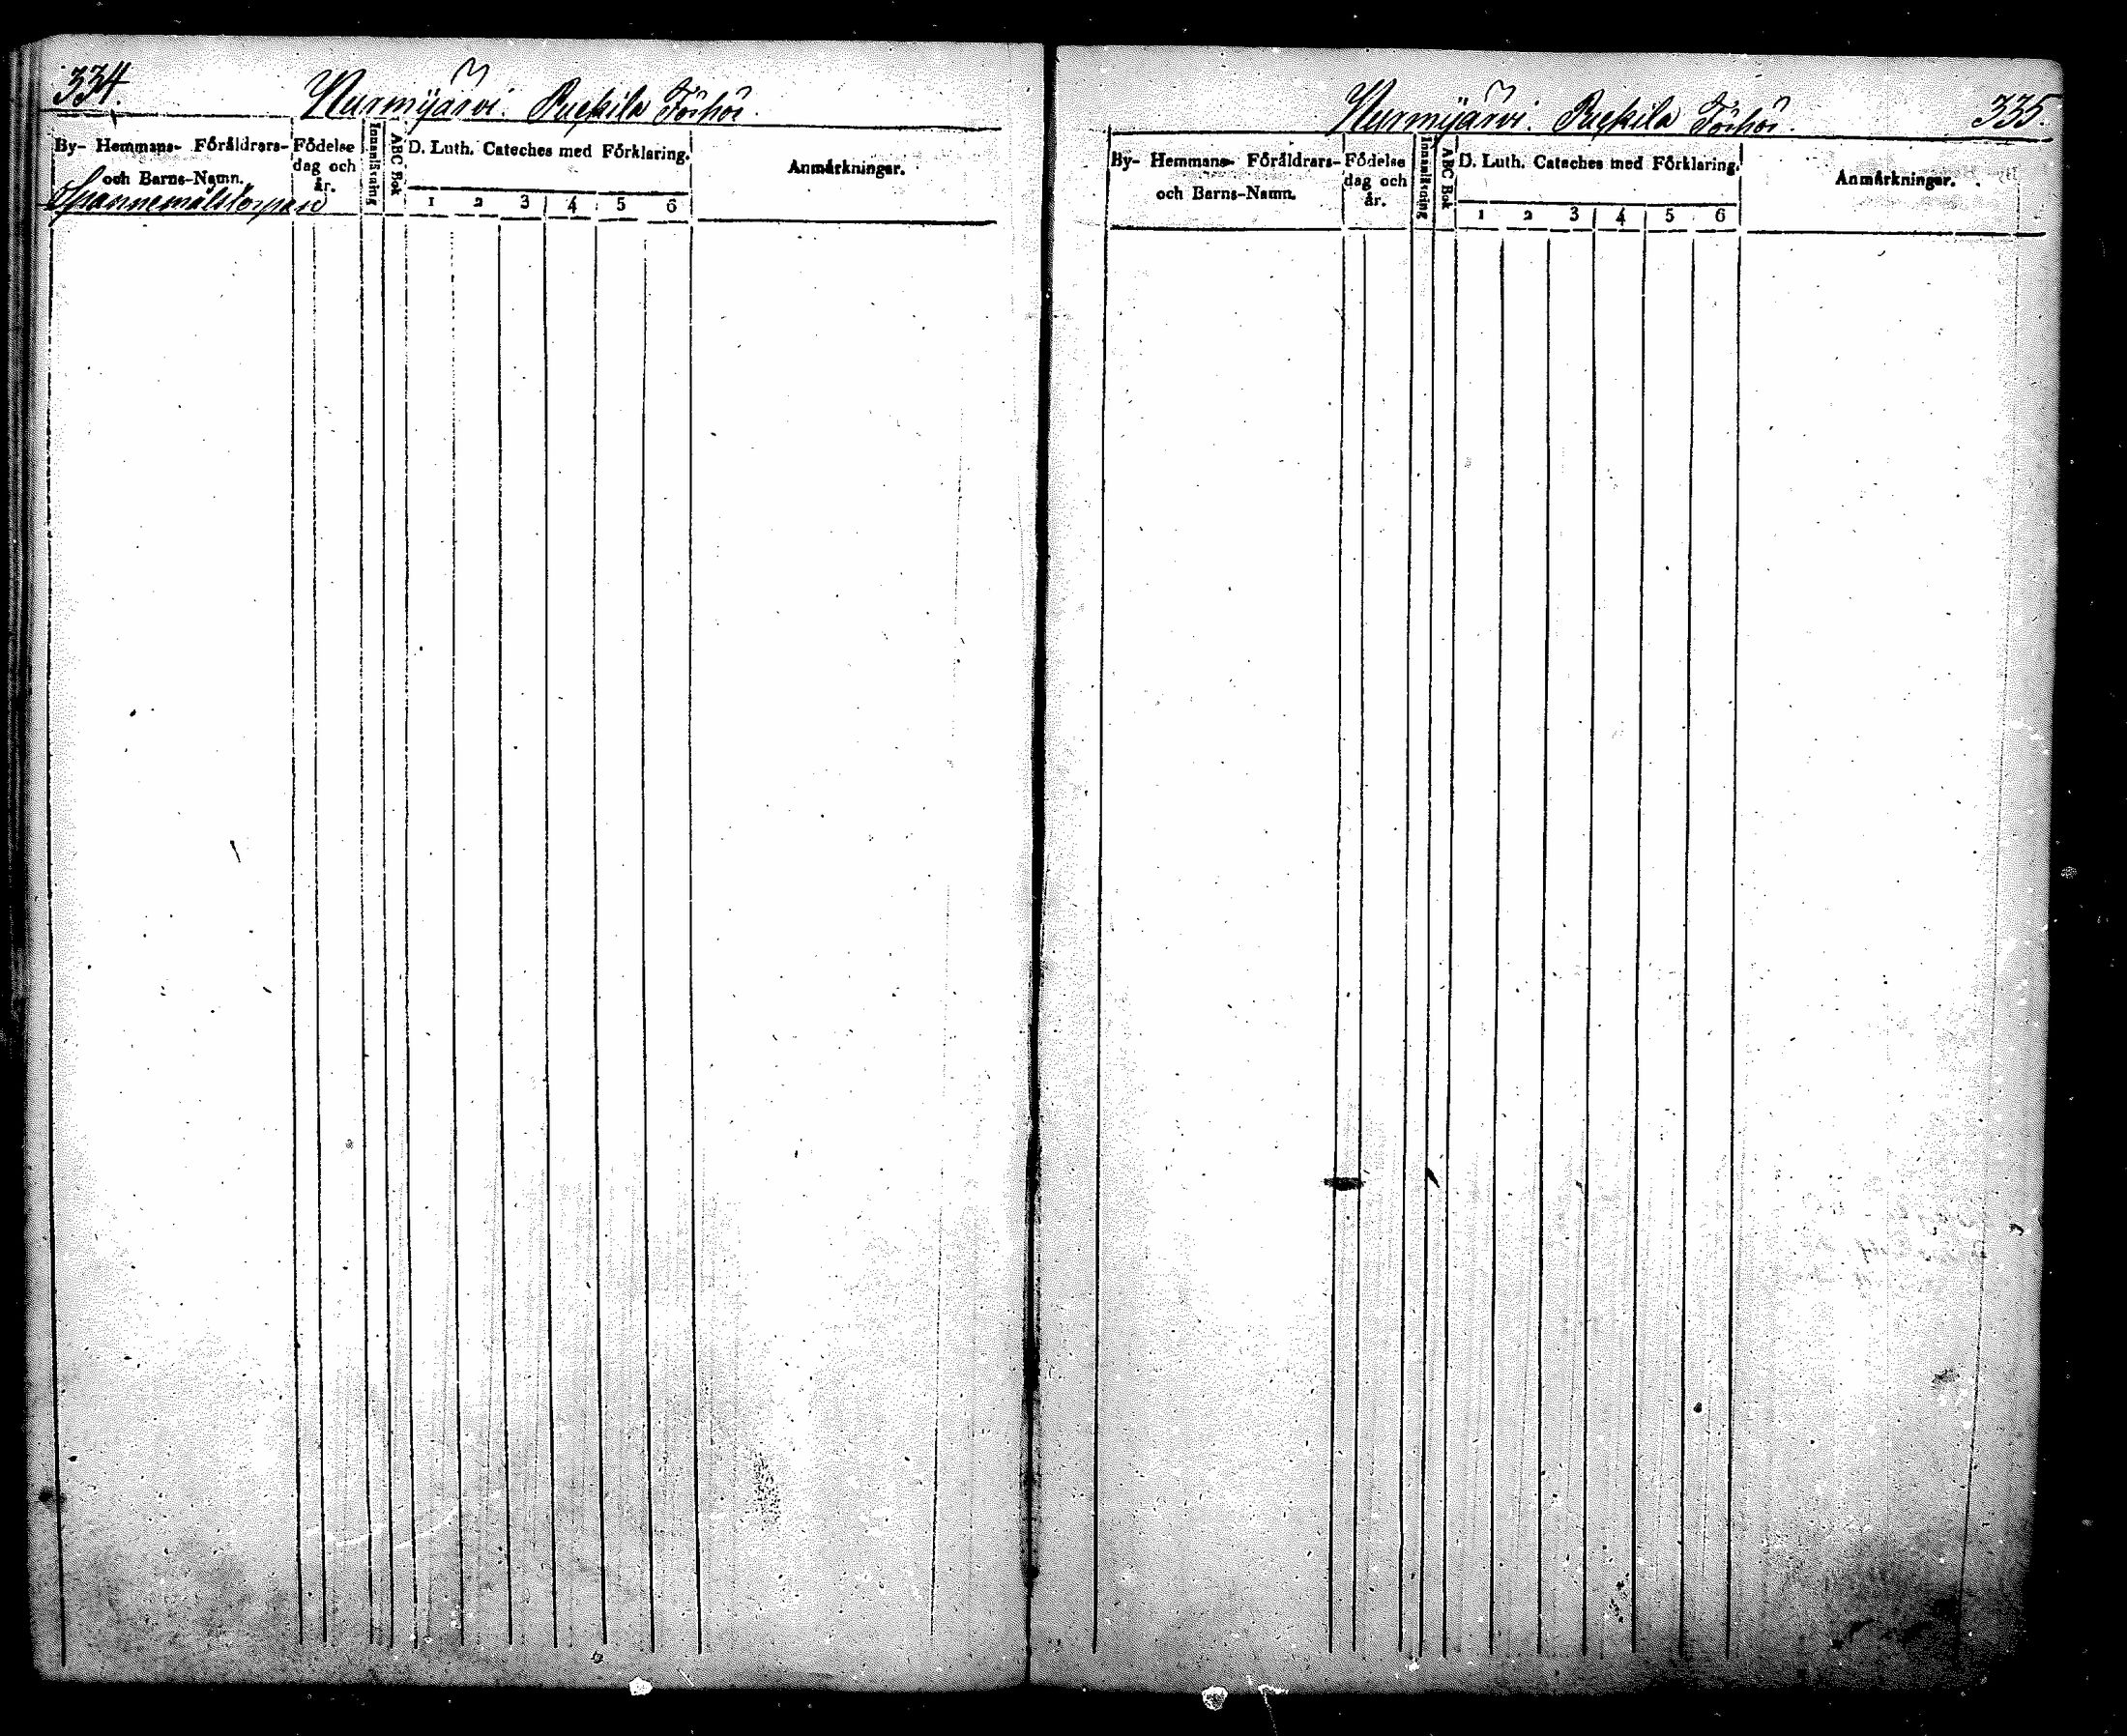 334.
Nurmijärvi. Puckila Förhör.
By- Hemmans- Föräldrars-
och Barns-Namn.
Födelse
dag och
år.
Innanläsning
ABC Bok
D. Luth. Cateches med Förklaring.
1 2 3 4 5 6
Anmärkningar.
Spannemålstorpare
Nurmijärvi. Puckila Förhör.
335.
By- Hemmans- Föräldrars-
och Barns-Namn.
Födelse
dag och
år.
Innanläsning
ABC Bok
D. Luth. Cateches med Förklaring.
1 2 3 4 5 6
Anmärkningar.